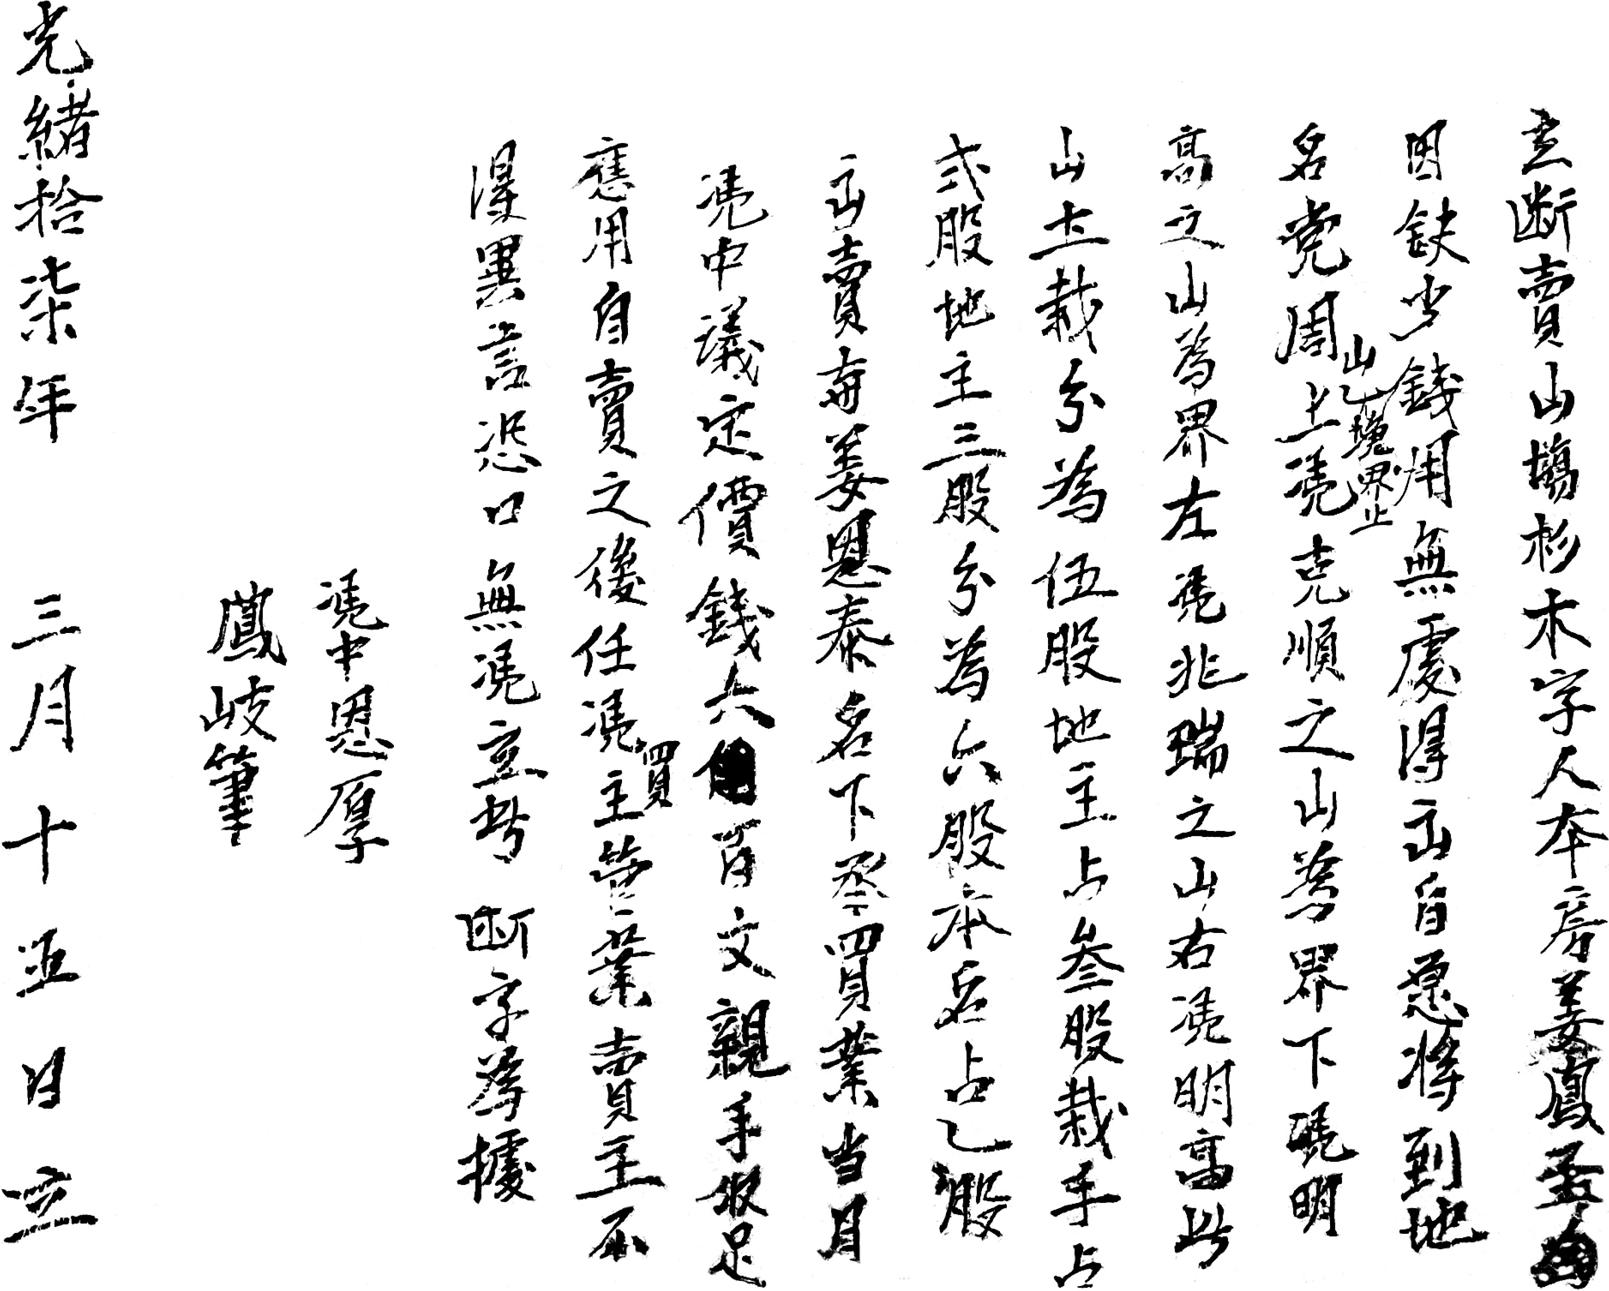 立断賣山塲杉木字人本房姜鳳至
因缺少錢用無處得出自愿將到地
名党周山乙塊界止上凴克順之山為界下凴明
高之山為界左凴兆瑞之山右凴明高此
山土栽分為伍股地主占叁股栽手占
弍股地主三股分為六股本名占乙股
出賣與姜恩泰名下承買業当日
凴中議定價錢六百文親手收足
應用自賣之後任凴買主管業賣主不
得異言恐口無凴立此断字為據
凴中恩厚
鳳岐筆
光緒拾柒年三月十五日立